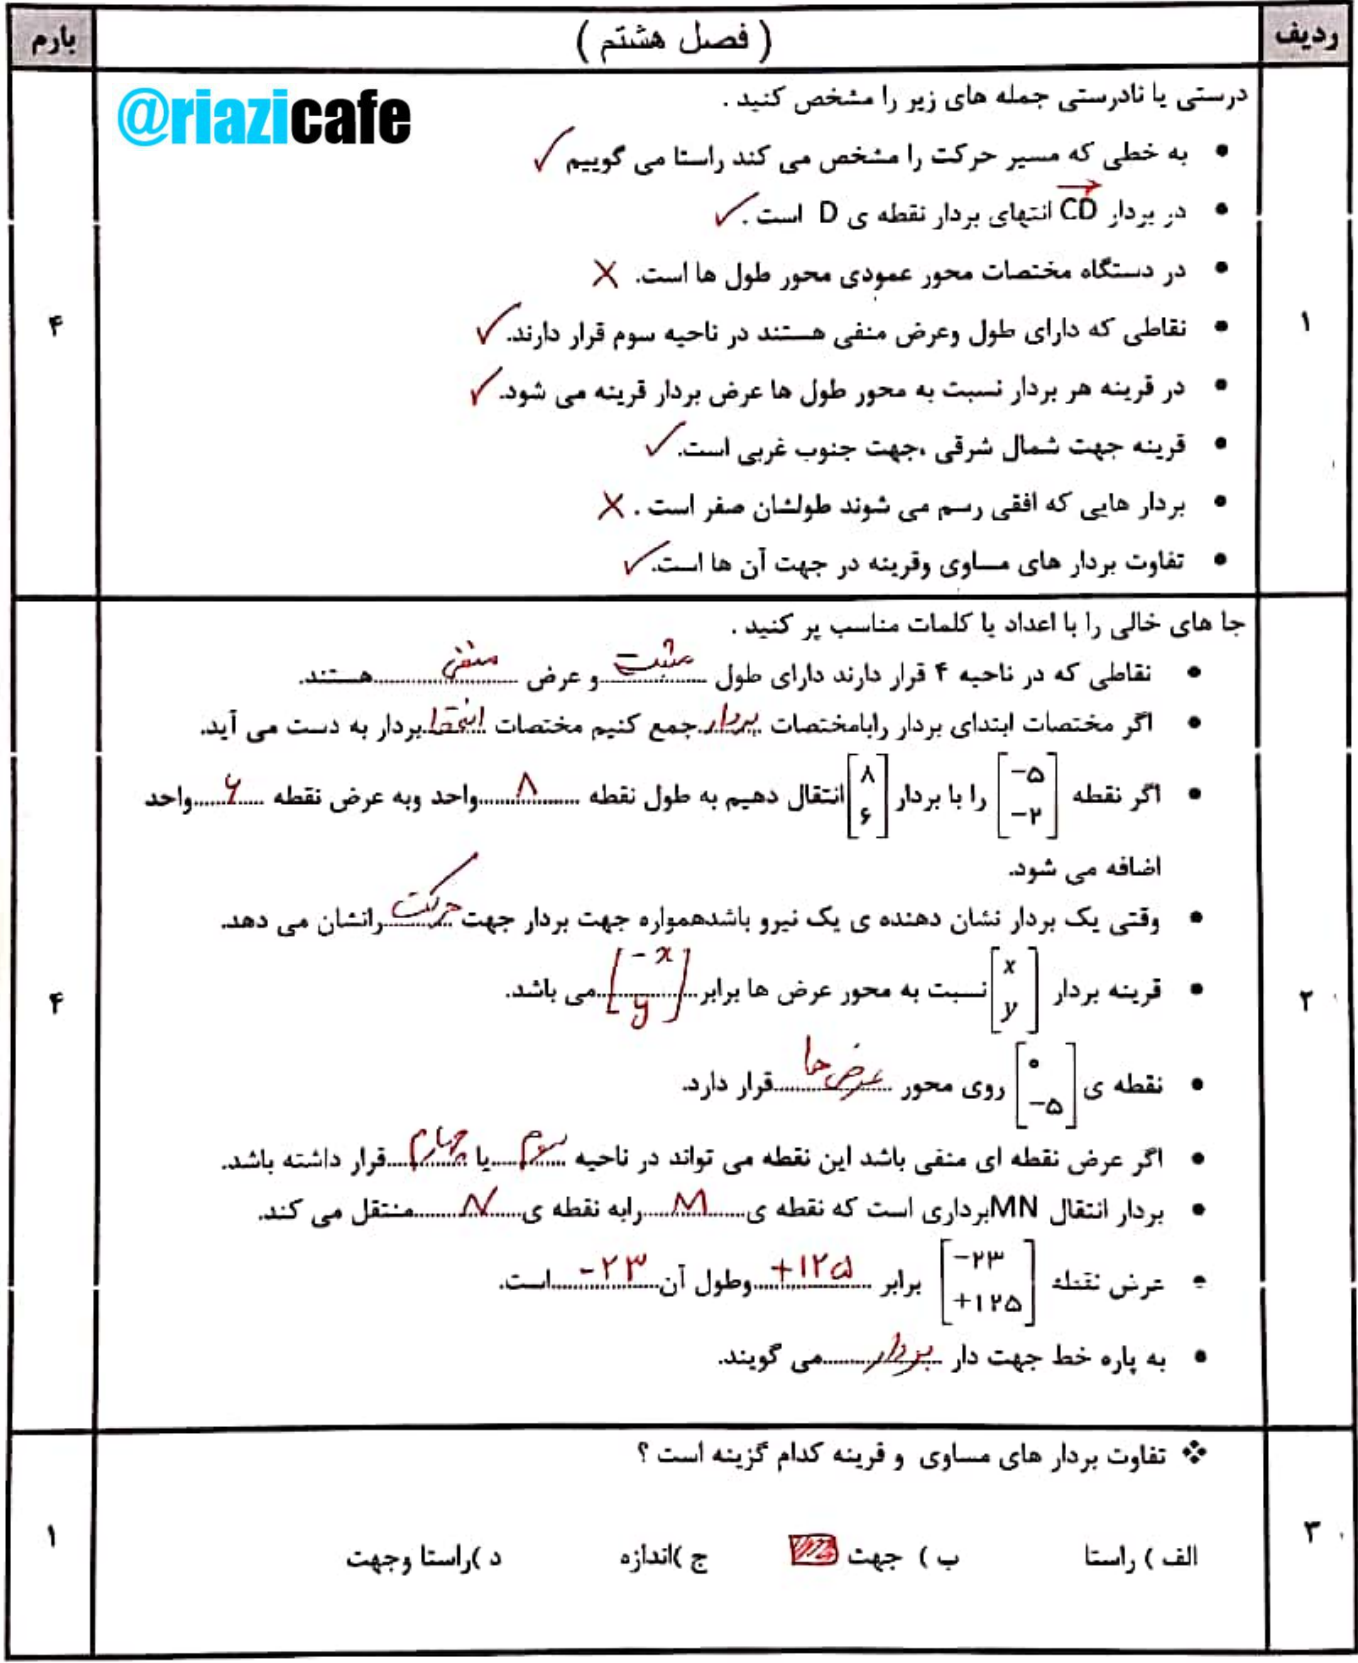 ردیف ( فصل هشتم ) بارم
@riazicafe
درستی یا نادرستی جمله های زیر را مشخص کنید .
• به خطی که مسیر حرکت را مشخص می کند راستا می گوییم ✓
• در بردار CD انتهای بردار نقطه ی D است . ✓
• در دستگاه مختصات محور عمودی محور طول ها است. ✗
• نقاطی که دارای طول وعرض منفی هستند در ناحیه سوم قرار دارند. ✓
۱ ۴
• در قرینه هر بردار نسبت به محور طول ها عرض بردار قرینه می شود. ✓
• قرینه جهت شمال شرقی ،جهت جنوب غربی است. ✓
• بردار هایی که افقی رسم می شوند طولشان صفر است . ✗
• تفاوت بردار های مساوی وقرینه در جهت آن ها است. ✓
جا های خالی را با اعداد یا کلمات مناسب پر کنید .
• نقاطی که در ناحیه ۴ قرار دارند دارای طول مثبت و عرض منفی هستند.
• اگر مختصات ابتدای بردار رابامختصات بردار جمع کنیم مختصات انتها بردار به دست می آید.
• اگر نقطه [−۵ −۲] را با بردار [۸ ۶] انتقال دهیم به طول نقطه ۸ واحد وبه عرض نقطه ۶ واحد
اضافه می شود.
• وقتی یک بردار نشان دهنده ی یک نیرو باشدهمواره جهت بردار جهت حرکت رانشان می دهد.
• قرینه بردار [x y] نسبت به محور عرض ها برابر [−x y] می باشد.
۲ ۴
• نقطه ی [۰ −۵] روی محور عرض ها قرار دارد.
• اگر عرض نقطه ای منفی باشد این نقطه می تواند در ناحیه سوم یا چهارم قرار داشته باشد.
• بردار انتقال MN برداری است که نقطه ی M رابه نقطه ی N منتقل می کند.
• عرض نقطه [−۲۳ +۱۲۵] برابر +۱۲۵ وطول آن −۲۳ است.
• به پاره خط جهت دار بردار می گویند.
❖ تفاوت بردار های مساوی و قرینه کدام گزینه است ؟
۳ ۱
الف ) راستا ب ) جهت ج )اندازه د )راستا وجهت